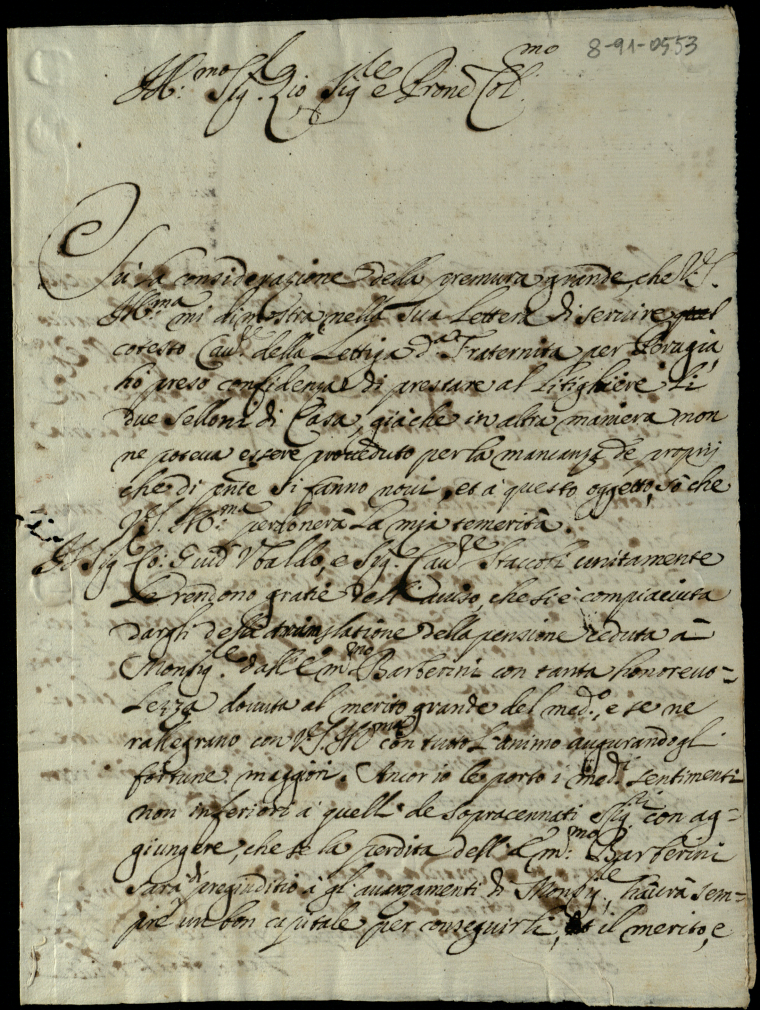 8-91-0553
Ill:mo Sig. Zio Sig.re e Prone Col.mo
Su la considerazione della premura grande, che V.S.
Ill:ma mi dimostra nella sua Lettera di servire quel
cotesto Cav.re della Lettiga d.a Fraternita per Perugia,
hò preso confidenza di prestare al Litighiere li
due selloni di Casa, giàche in altra maniera non
ne poteva essere proceduto per la mancanza de proprij
che di pnte si fanno novi, et a questo oggetto, sò che
V.S. Ill:ma perdonerà la mia temerità.
Il Sig. Co: Guid'Vbaldo, e Sig. Cav.re Staccoli unitamente
Le rendono gratie dell'auiso, che si è compiaciuta
dargli della translatione della pensione ceduta à
Monsig.re dall'E.mo Barberini con tanta honoreuo=
lezza douuta al merito grande del med.o, e se ne
rallegrano con V.S. Ill.ma con tutto l'animo augurandogli
fortune maggiori. Ancor io le porto i med.i sentimenti
non inferiori à quelli de sopracennati Sig.ri con ag=
giungere, che se la perdita dell'E.mo Barberini
sarà di pregiuditio à gl'auanzamenti di Monsig.re, hauerà sem=
pre un bon capitale per conseguirli, et il merito, e